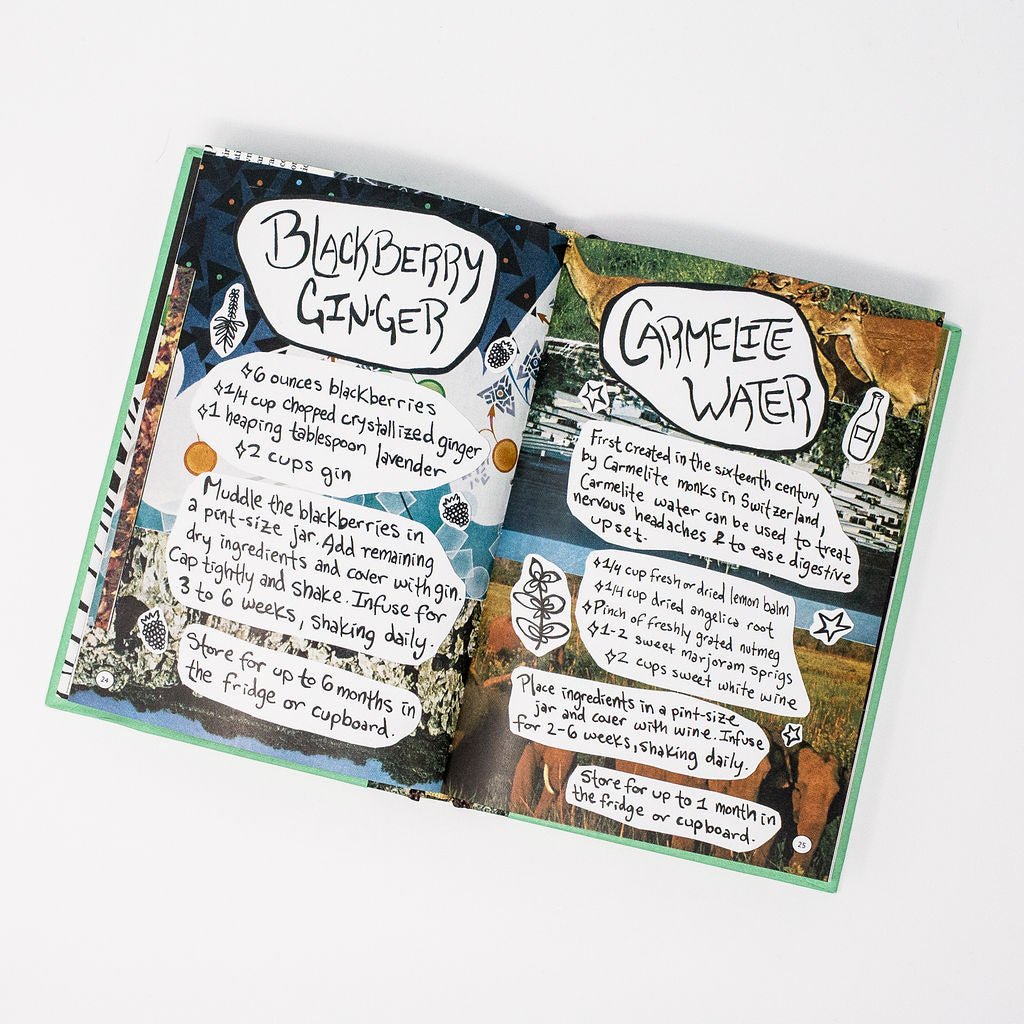 BLACKBERRY
GIN·GER
✧6 ounces blackberries
✧1/4 cup chopped crystallized ginger
✧1 heaping tablespoon lavender
✧2 cups gin
Muddle the blackberries in
a pint-size jar. Add remaining
dry ingredients and cover with gin.
Cap tightly and shake. Infuse for
3 to 6 weeks, shaking daily.
Store for up to 6 months in
the fridge or cupboard.
24
CARMELITE
WATER
First created in the sixteenth century
by Carmelite monks in Switzerland,
Carmelite water can be used to treat
nervous headaches & to ease digestive
upset.
✧1/4 cup fresh or dried lemon balm
✧1/4 cup dried angelica root
✧Pinch of freshly grated nutmeg
✧1-2 sweet marjoram sprigs
✧2 cups sweet white wine
Place ingredients in a pint-size
jar and cover with wine. Infuse
for 2-6 weeks, shaking daily.
Store for up to 1 month in
the fridge or cupboard.
25